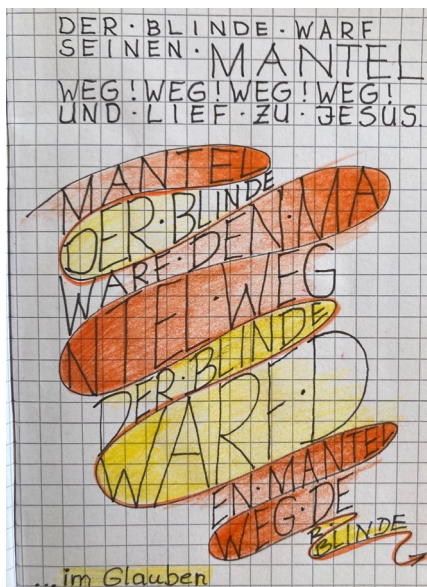 DER·BLINDE·WARF
SEINEN·MANTEL
WEG!WEG!WEG!WEG!
UND·LIEF·ZU·JESUS.
MANTEL
DER·BLINDE
WARF·DEN·MA
NTEL·WEG
DER·BLINDE
WARF·D
EN·MANTEL
WEG·DE
R·
BLINDE
...im Glauben